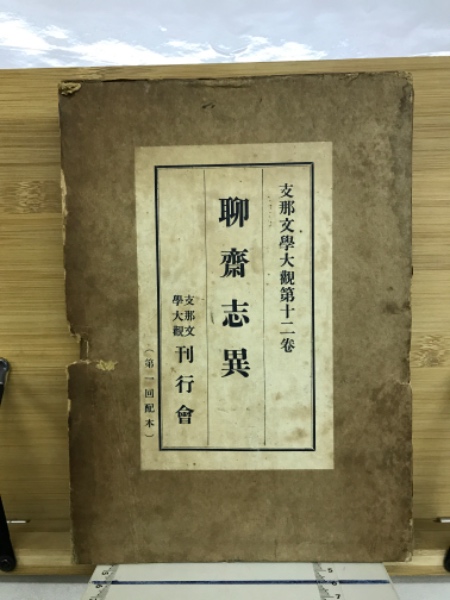 支那文學大觀第十二卷
聊齋志異
支那文學大觀刊行會
(第一回配本)